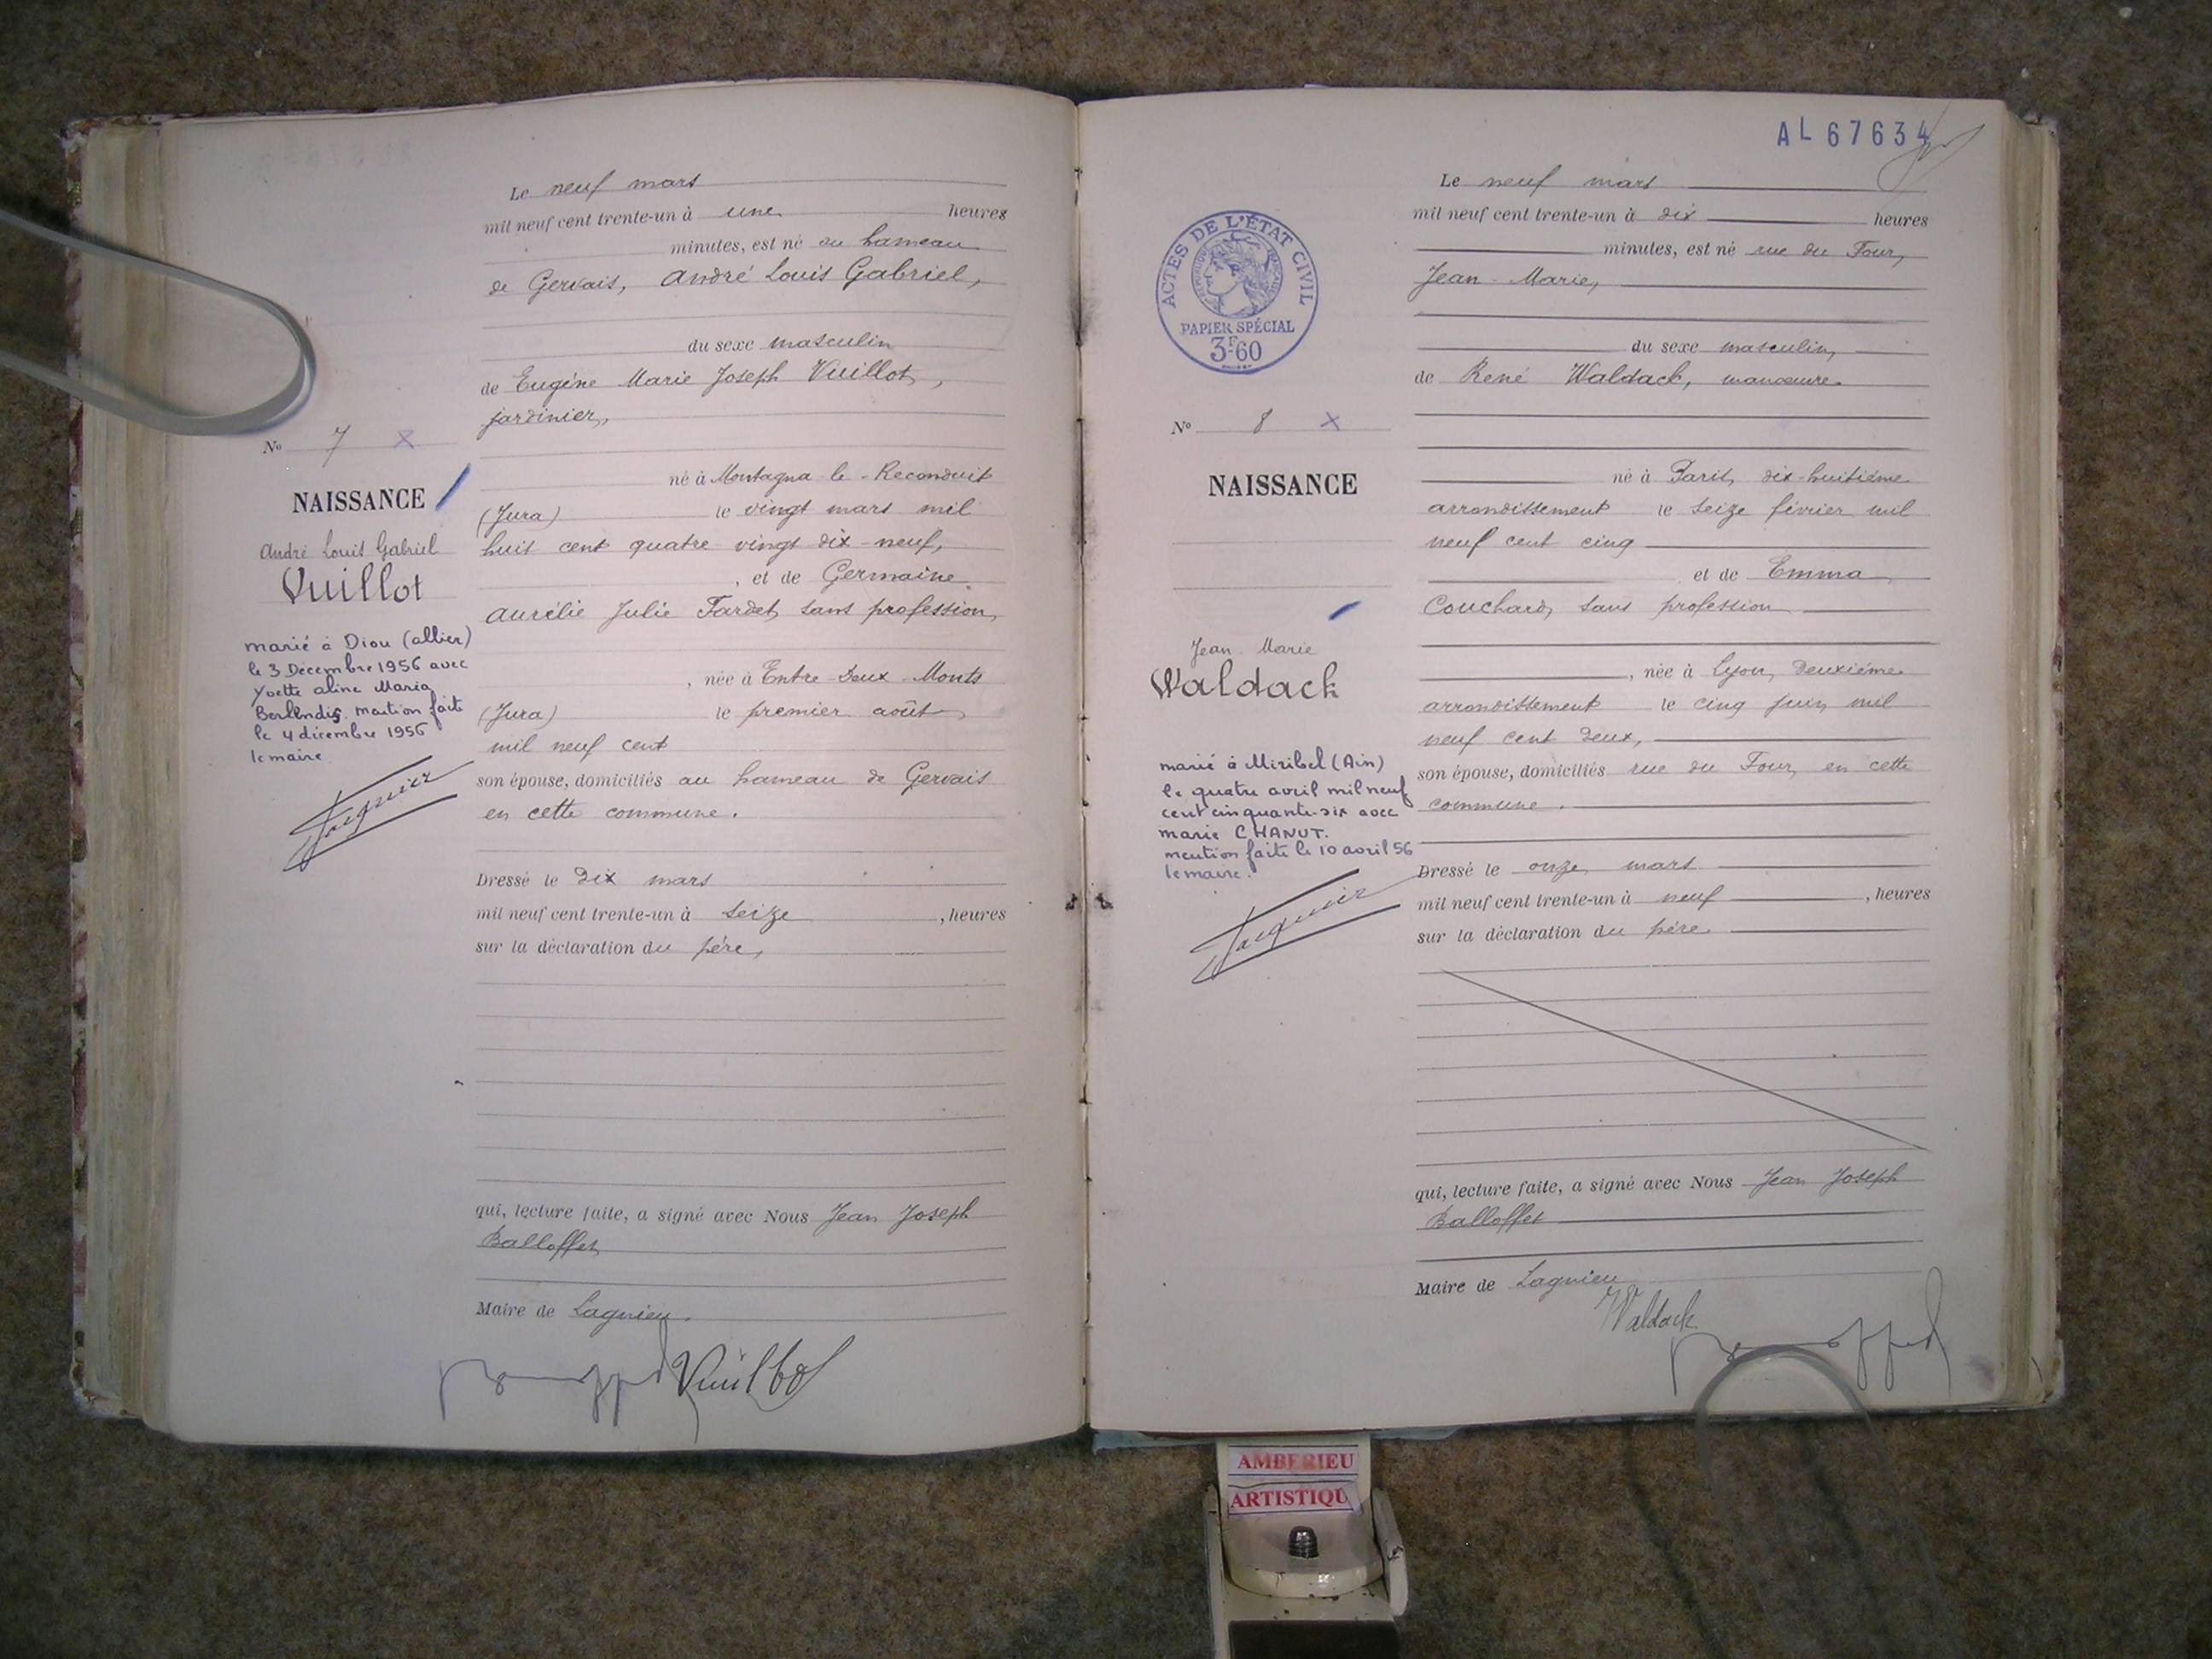 Le neuf mars
mil neuf cent trente-un à une heures
minutes, est né au hameau
de Gervais, André Louis Gabriel,
du sexe masculin
de Eugène Marie Joseph Vuillot,
jardinier,
né à Montagna-le-Reconduit
(Jura) le vingt mars mil
huit cent quatre vingt dix-neuf,
, et de Germaine
Aurélie Julie Tardet, sans profession,
, née à Entre-Deux-Monts
(Jura) le premier août
mil neuf cent
son épouse, domiciliés au hameau de Gervais
en cette commune.
Dressé le dix mars
mil neuf cent trente-un à seize , heures
sur la déclaration du père,
qui, lecture faite, a signé avec Nous Jean Joseph
Balloffet
Maire de Lagnieu.
Vuillot
No 7 X
NAISSANCE
André Louis Gabriel
Vuillot
marié à Diou (allier)
le 3 Décembre 1956 avec
Yvette Aline Maria
Berlendis. mention faite
le 4 décembre 1956
le maire
Jacquier
AL 67634
ACTES DE L'ÉTAT CIVIL
PAPIER SPÉCIAL
3F60
No 8 X
NAISSANCE
Jean-Marie
Waldack
marié à Miribel (Ain)
le quatre avril mil neuf
cent cinquante-six avec
marie CHANUT.
mention faite le 10 avril 56
le maire.
Jacquier
Le neuf mars
mil neuf cent trente-un à dix heures
minutes, est né rue du Four,
Jean-Marie,
du sexe masculin,
de René Waldack, manœuvre
né à Paris, dix-huitième
arrondissement le seize février mil
neuf cent cinq
et de Emma
Couchard, sans profession
, née à Lyon, deuxième
arrondissement le cinq juin mil
neuf cent deux,
son épouse, domiciliés rue du Four, en cette
commune.
Dressé le onze mars
mil neuf cent trente-un à neuf , heures
sur la déclaration du père
qui, lecture faite, a signé avec Nous Jean Joseph
Balloffet
Maire de Lagnieu
Waldack
AMBERIEU
ARTISTIQU